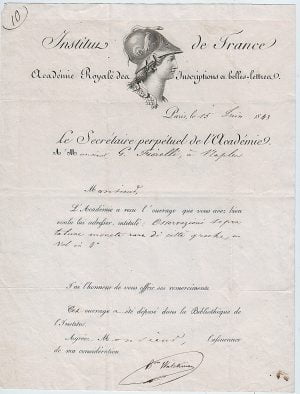 10
Institut de France
Académie Royale des Inscriptions et belles-lettres
Paris, le 15 Juin 1843
Le Secrétaire perpétuel de l'Académie
A Monsieur G. à Naples
Monsieur,
L'Académie a reçu l'ouvrage que vous avez bien
voulu lui adresser, intitulé: Osservazioni sopra
talune monete rare di città greche, un
vol in 4°
J'ai l'honneur de vous offrir ses remerciments.
Cet ouvrage a été déposé dans la Bibliothèque de
l'Institut.
Agréez, Monsieur, l'assurance
de ma considération